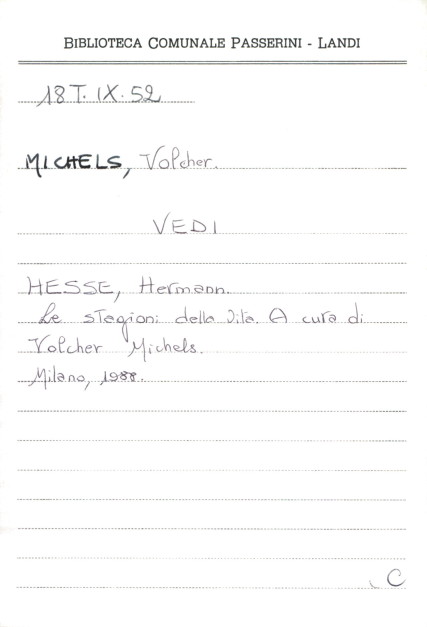 BIBLIOTECA COMUNALE PASSERINI - LANDI
18 T. IX. 52
MICHELS, Volcher.
VEDI
HESSE, Hermann.
Le stagioni della vita. A cura di
Volcher Michels.
Milano, 1988.
C